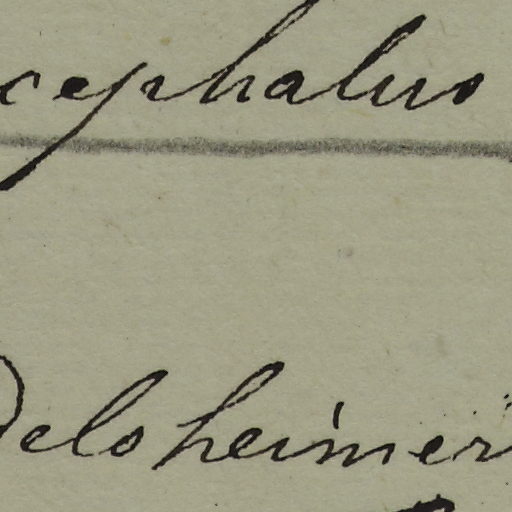 cephalus
delsheimer